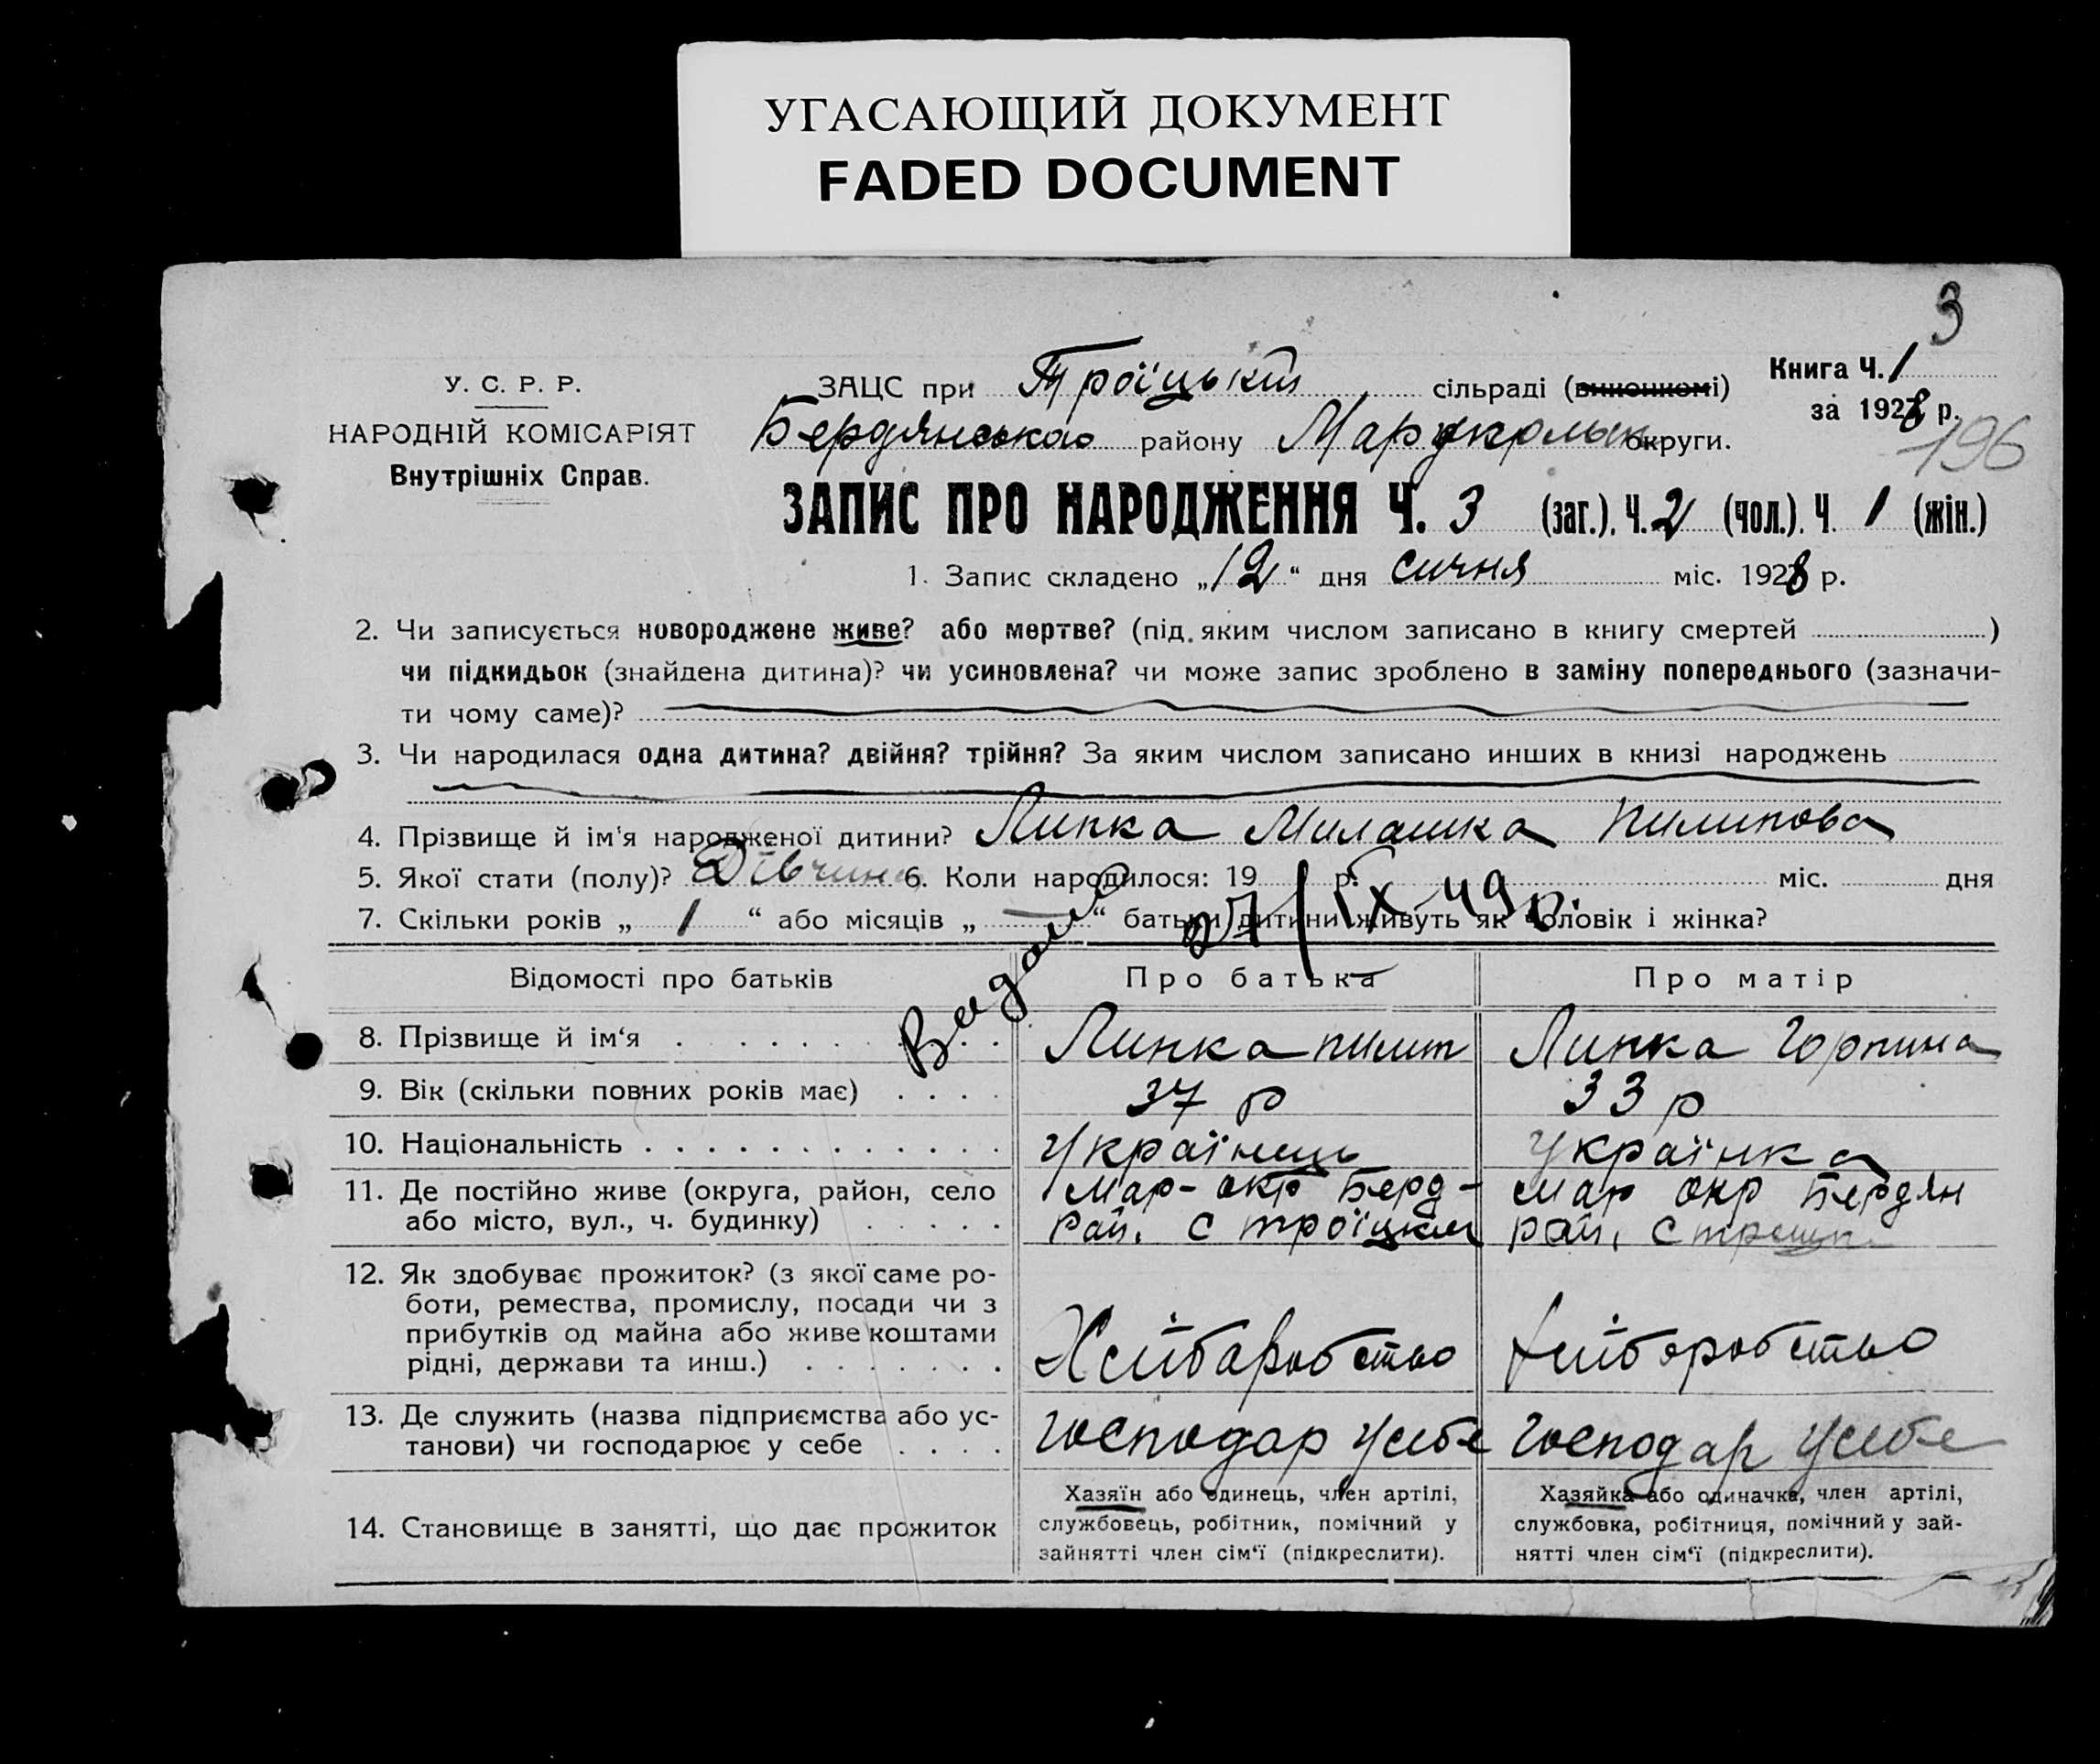 УГАСАЮЩИЙ ДОКУМЕНТ
FADED DOCUMENT
3
У. С. Р. Р.
НАРОДНІЙ КОМІСАРІЯТ
Внутрішніх Справ.
ЗАЦС при Троїцькій сільраді (виконкомі)
Бердянського району округи.
Книга Ч. 1
за 1928 р.
196
ЗАПИС ПРО НАРОДЖЕННЯ Ч. 3 (заг.). Ч. 2 (чол.). Ч. 1 (жін.)
1. Запис складено „12“ дня сичня міс. 1928 р.
2. Чи записується новороджене живе? або мертве? (під яким числом записано в книгу смертей )
чи підкидьок (знайдена дитина)? чи усиновлена? чи може запис зроблено в заміну попереднього (зазначи-
ти чому саме)?
3. Чи народилася одна дитина? двійня? трійня? За яким числом записано инших в книзі народжень
4. Прізвище й ім'я народженої дитини? Липка Милашка Пилипова
5. Якої стати (полу)? Дівчина 6. Коли народилося: 19 р. міс. дня
7. Скільки років „ 1 “ або місяців „ — “ батьки дитини живуть як чоловік і жінка?
27/IX 49 р.
Відомості про батьків Про батька Про матір
8. Прізвище й ім‘я Липка пилип Липка Горпина
9. Вік (скільки повних років має) 37 р 33 р
10. Національність Українець Українка
11. Де постійно живе (округа, район, село Мар-окр Берд- мар окр Бердян
або місто, вул., ч. будинку) рай. с троїцким рай. с
12. Як здобуває прожиток? (з якої саме ро-
боти, ремества, промислу, посади чи з
прибутків од майна або живе коштами
рідні, держави та инш.) Хлібаробство хліборобство
13. Де служить (назва підприємства або ус-
танови) чи господарює у себе господар усебе господар усебе
14. Становище в занятті, що дає прожиток
Хазяїн або одинець, член артілі,
службовець, робітник, помічний у
зайнятті член сім‘ї (підкреслити).
Хазяйка або одиначка, член артілі,
службовка, робітниця, помічний у зай-
нятті член сім‘ї (підкреслити).